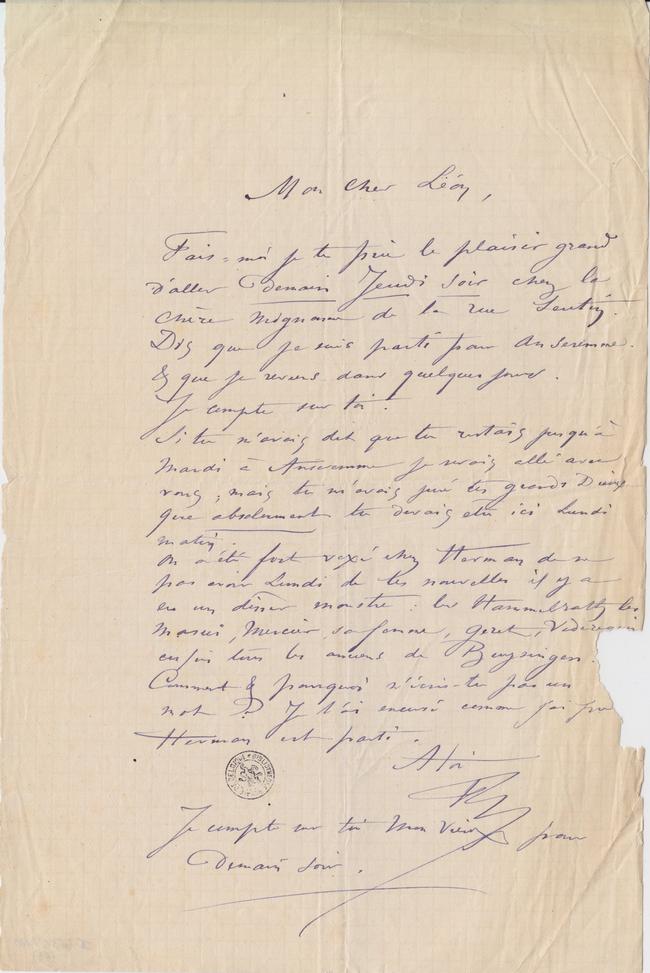 Mon cher Léon,
Fais-moi je te prie le plaisir grand
d'aller demain Jeudi soir chez la
chère mignonne de la rue
Dis que je suis parti pour Anseremme
& que je reviens dans quelques jours.
Je compte sur toi.
Si tu n'avais dit que tu restais jusqu'à
mardi à Anseremme je serais allé avec
vous, mais tu m'avais juré tes grands Dieux
que absolument tu devais être ici Lundi
matin.
On a été fort vexé chez Herman de ne
pas avoir Lundi de tes nouvelles il y a
eu un dîner monstre : les les
Masui, Mercier, sa femme,
enfin tous les anciens de Buysingen.
Comment & pourquoi n'écris-tu pas un
mot ? Je t'ai excusé comme j'ai pu
Herman est parti.
A toi
Je compte sur toi mon vieux pour
Demain soir.